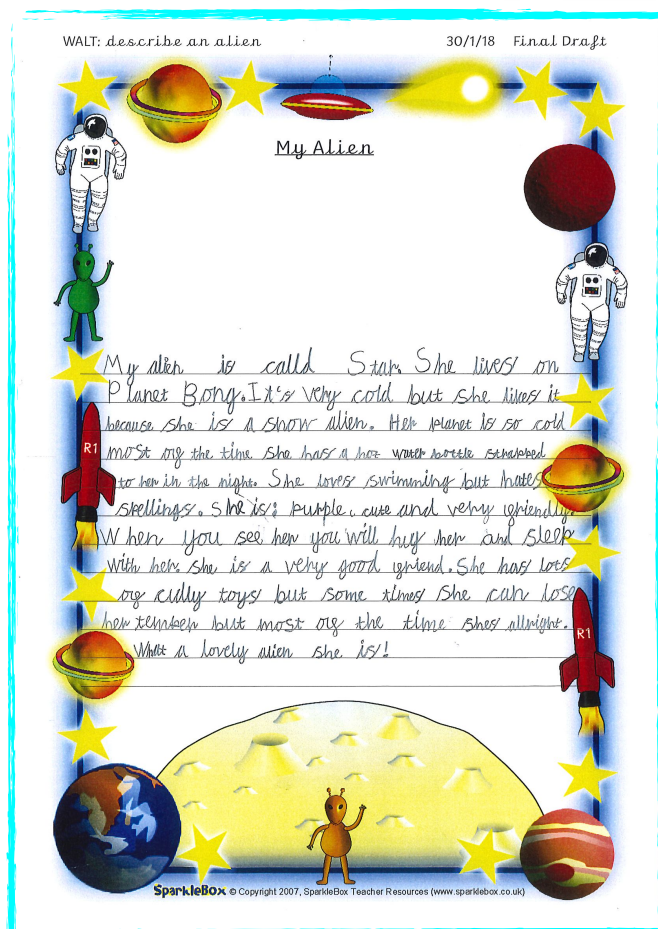 WALT: describe an alien 30/1/18 Final Draft
My Alien
My alien is calld Star. She lives on
Planet Bong. It's very cold but she likes it
because she is a snow alien. Her planet is so cold
most of the time she has a hot water bottle strapped
to her in the night. She loves swimming but hates
spellings. She is: purple, cute and very friendly.
When you see her you will hug her and sleep
with her. she is a very good friend. She has lots
of cudly toys but some times she can lose
her temper but most of the time shes allright.
What a lovely alien she is!
R1
R1
SparkleBox © Copyright 2007, SparkleBox Teacher Resources (www.sparklebox.co.uk)